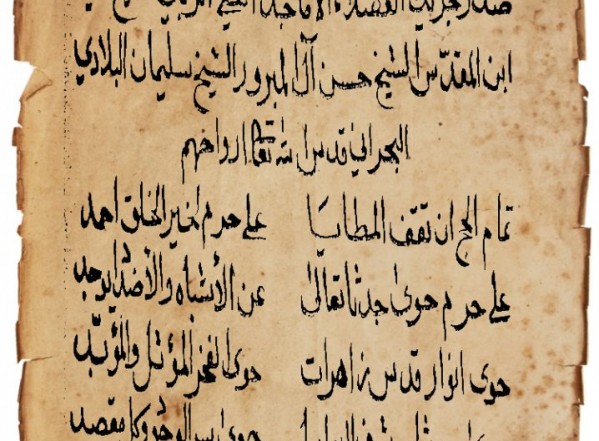 الفضلاء الاماجد
ابن المقدس الشيخ حسن آل المبرور الشيخ سليمان البلادي
البحراني قدس الله تعالى ارواحهم
تمام الحج ان تقف المطايا على حرم لخير الخلق احمد
على حرم حوى جدثا تعالى عن الأشباه والأضداد
حوى انوار قدس زاهرات حوى الفخر المؤثل والمؤبد
حوى سر الوجود وكل مقصد